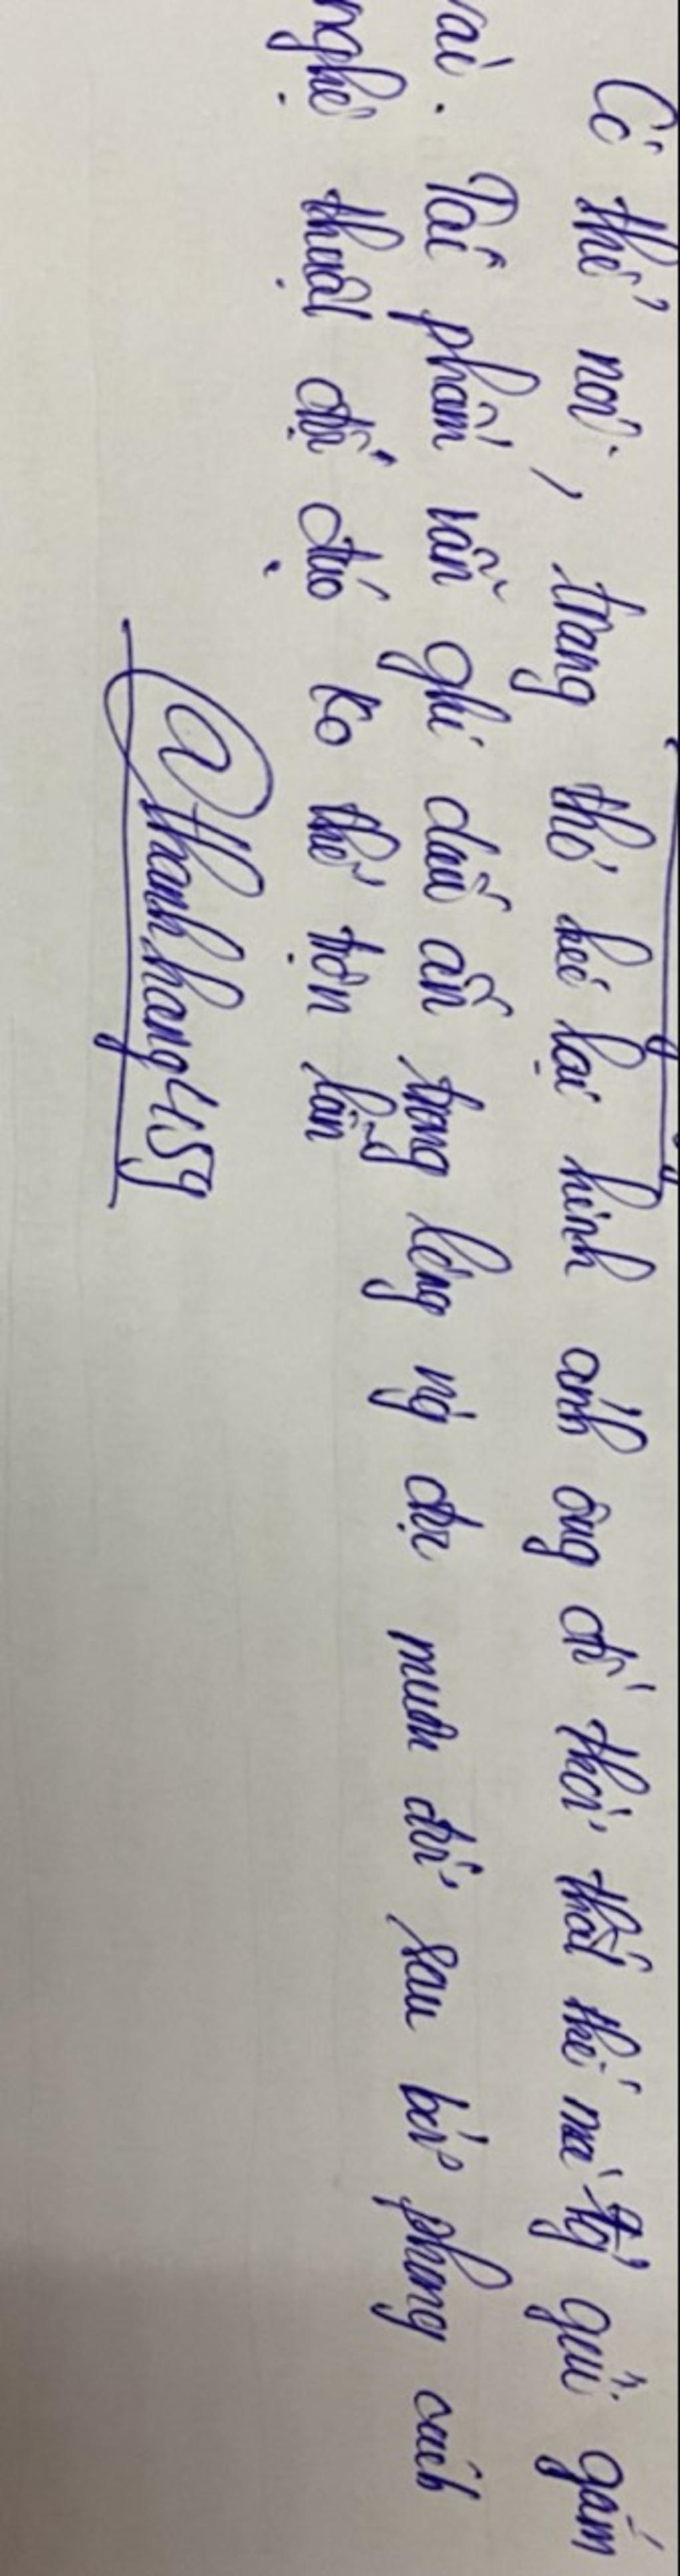 Có thể nói, trang thơ kéo lại hình ảnh ông đồ thời thất thế mà tg gửi gắm
vài. Tác phẩm vẫn ghi dấu ấn trong lòng ng đọc muôn đời sau bởi phong cách
nghệ thuật độc đáo ko thể trộn lẫn
@thanhhang459